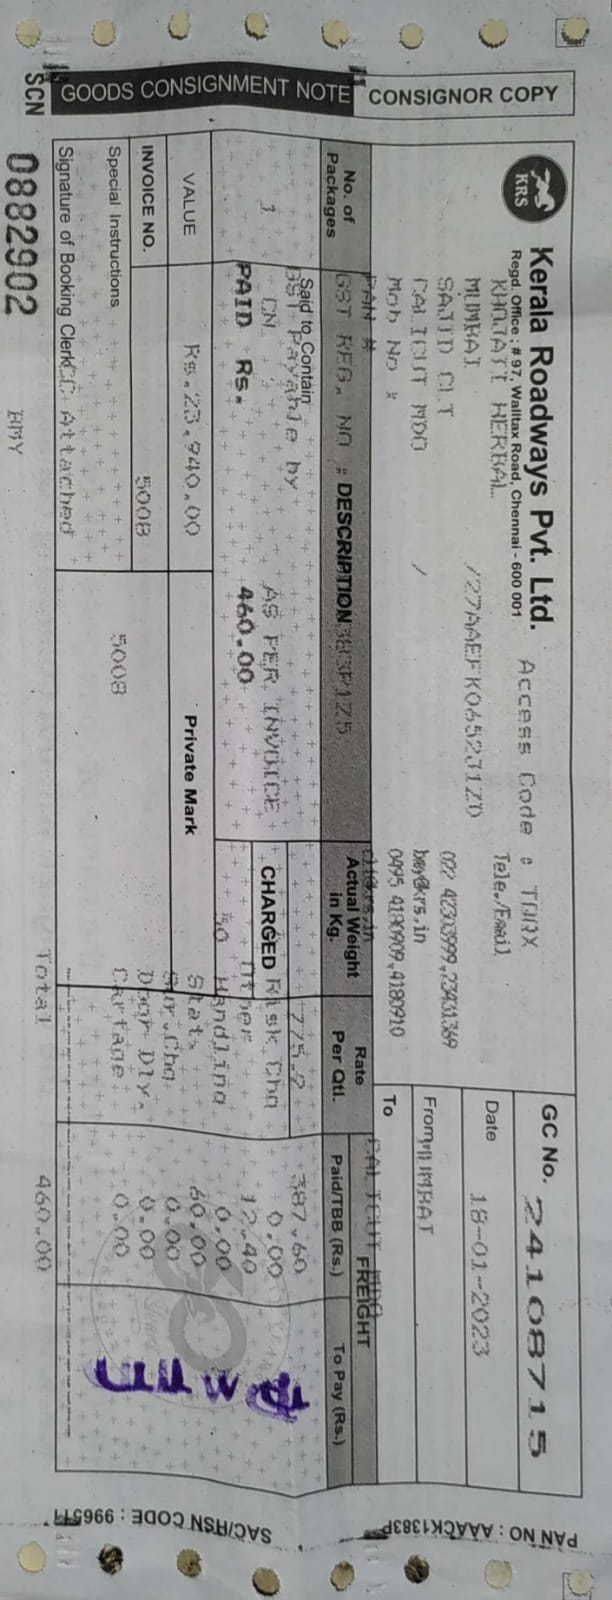 GOODS CONSIGNMENT NOTE
CONSIGNOR COPY
KRS
Kerala Roadways Pvt. Ltd.
Regd. Office : # 97, Walltax Road, Chennai - 600 001
Access Code : TQQX
KHOJATI HERBAL
Tele./Email
MUMBAI /27AAEFK0652J1ZD
022 42303999,73431369
SAJID CLT
bmy@krs.in
CALICUT MDO /
0495 4180909,4180910
Mob No :
PAN #
GC No. 2410871 5
Date 18-01-2023
From MUMBAI
To CALICUT MDO
No. of Packages
GST REG. NO :
DESCRIPTION
Actual Weight in Kg.
Rate Per Qtl.
FREIGHT
Paid/TBB (Rs.)
To Pay (Rs.)
Said to Contain
GST Payable by
775.2 387.60
1 CN AS PER INVOICE
CHARGED Risk Chg 0.00
PAID Rs. 460.00
Other 12.40
50 Handling 0.00
VALUE Rs.23,940.00
Private Mark
Stat. 60.00
Sur.Chg 0.00
INVOICE NO. 5008
Door Dly. 0.00
Special Instructions
5008
Cartage 0.00
Signature of Booking Clerk
CC Attached
Total 460.00
SCN 0882902
BMY
PAN NO : AAACK1383P
SAC/HSN CODE : 996511